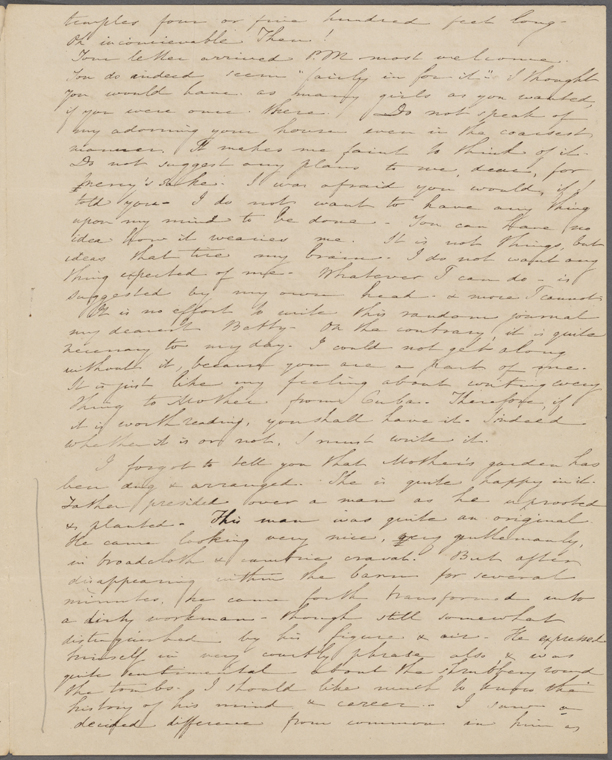 temples four or five hundred feet long.
Oh inconceivable Then!
Your letter arrived P.M. most welcome.
You do indeed seem "fairly in for it". I thought
you would have as many girls as you wanted,
if you were once there. Do not speak of
my adorning your house even in the coarsest
manner. It makes me faint to think of it.
Do not suggest any plans to me, dear, for
mercy's sake. I was afraid you would, if I
told you. I do not want to have any thing
upon my mind to be done. You can have no
idea how it wearies me. It is not things, but
ideas that tire my brain. I do not want any
thing expected of me. Whatever I can do is
suggested by my own head. & more I cannot.
It is no effort to write this random journal
my dearest Betty. On the contrary, it is quite
necessary to my day. I could not get along
without it, because you are a part of me.
It is just like my feeling about writing every
thing to Mother from Cuba. Therefore, if
it is worth reading, you shall have it. Indeed
whether it is or not, I must write it.
I forgot to tell you that Mother's garden has
been dug & arranged. She is quite happy in it.
Father presided over a man as he uprooted
& planted. This man was quite an original.
He came looking very nice, very gentlemanly,
in broadcloth & cambric cravat. But after
disappearing within the barn for several
minutes, he came forth transformed into
a dirty workman - though still somewhat
distinguished by his figure & air. He expressed
himself in very courtly phrase also & was
quite sentimental about the shrubbery round
the tombs. I should like much to know the
history of his mind & career. I saw a
decided difference from common in him as